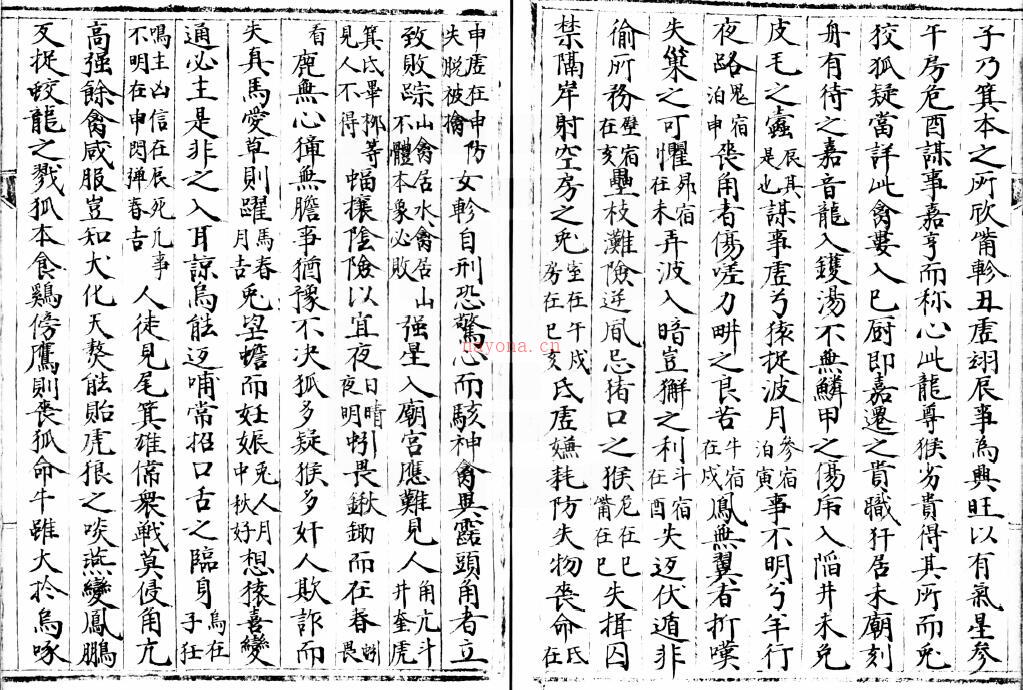 子乃箕本之所欣觜軫丑虛翊辰事為興旺以有氣星參
午房危酉謀事嘉亨而称心此龍尊猴劣貴得其所而兎
狡狐疑當詳此禽婁入巳厨即嘉遷之賞職犴居未廟刻
舟有待之嘉音龍入鑊湯不無鱗甲之傷庙入陷井未免
皮毛之蠹辰其是也謀事虛兮猿捉波月參宿泊寅事不明兮羊行
夜路鬼宿泊申丧角者傷嗟力畊之艮苦牛宿在戍鳳無翼者折嘆
失巢之可懼昴宿在未弄波入暗豈獬之利斗宿在酉失迓伏遁非
偷所務壁宿在亥壘枝灘險逆風忌猪口之猴危在巳觜在巳失揖囚
禁隔岸射空房之兎室在午戍房在巳亥氐虛嫌耗防失物丧命氐在
申虛在申防失脱被擒女軫自刑恐驚心而駭神禽與露頭角者立
致敗踪山禽居水禽居山不體本象必敗强星入廟宮應難見人角亢斗井奎虎
箕氐畢柳等見人不得蝠攘陰險以宜夜日暗夜明蚓畏鍬鋤而在春蚓畏
看鹿無心獐無膽事猶豫不决狐多疑猴多奸人欺詐而
失真馬愛草則躍馬春月吉兎望蟾而妊娠兎人月中秋好想猿喜變
通必主是非之入耳諒烏能迓哺常招口舌之臨身烏在子在
鳴主凶信在辰死几事不明在申閃殫春吉人徒見尾箕雄儕衆戦莫侵角亢
高强餘禽咸服豈知犬化天獒能貽虎狼之啖燕變鳳鵬
叉捉蛟龍之戮狐本食鷄傍鷹則丧狐命牛雖大扵烏啄
nayona.cn